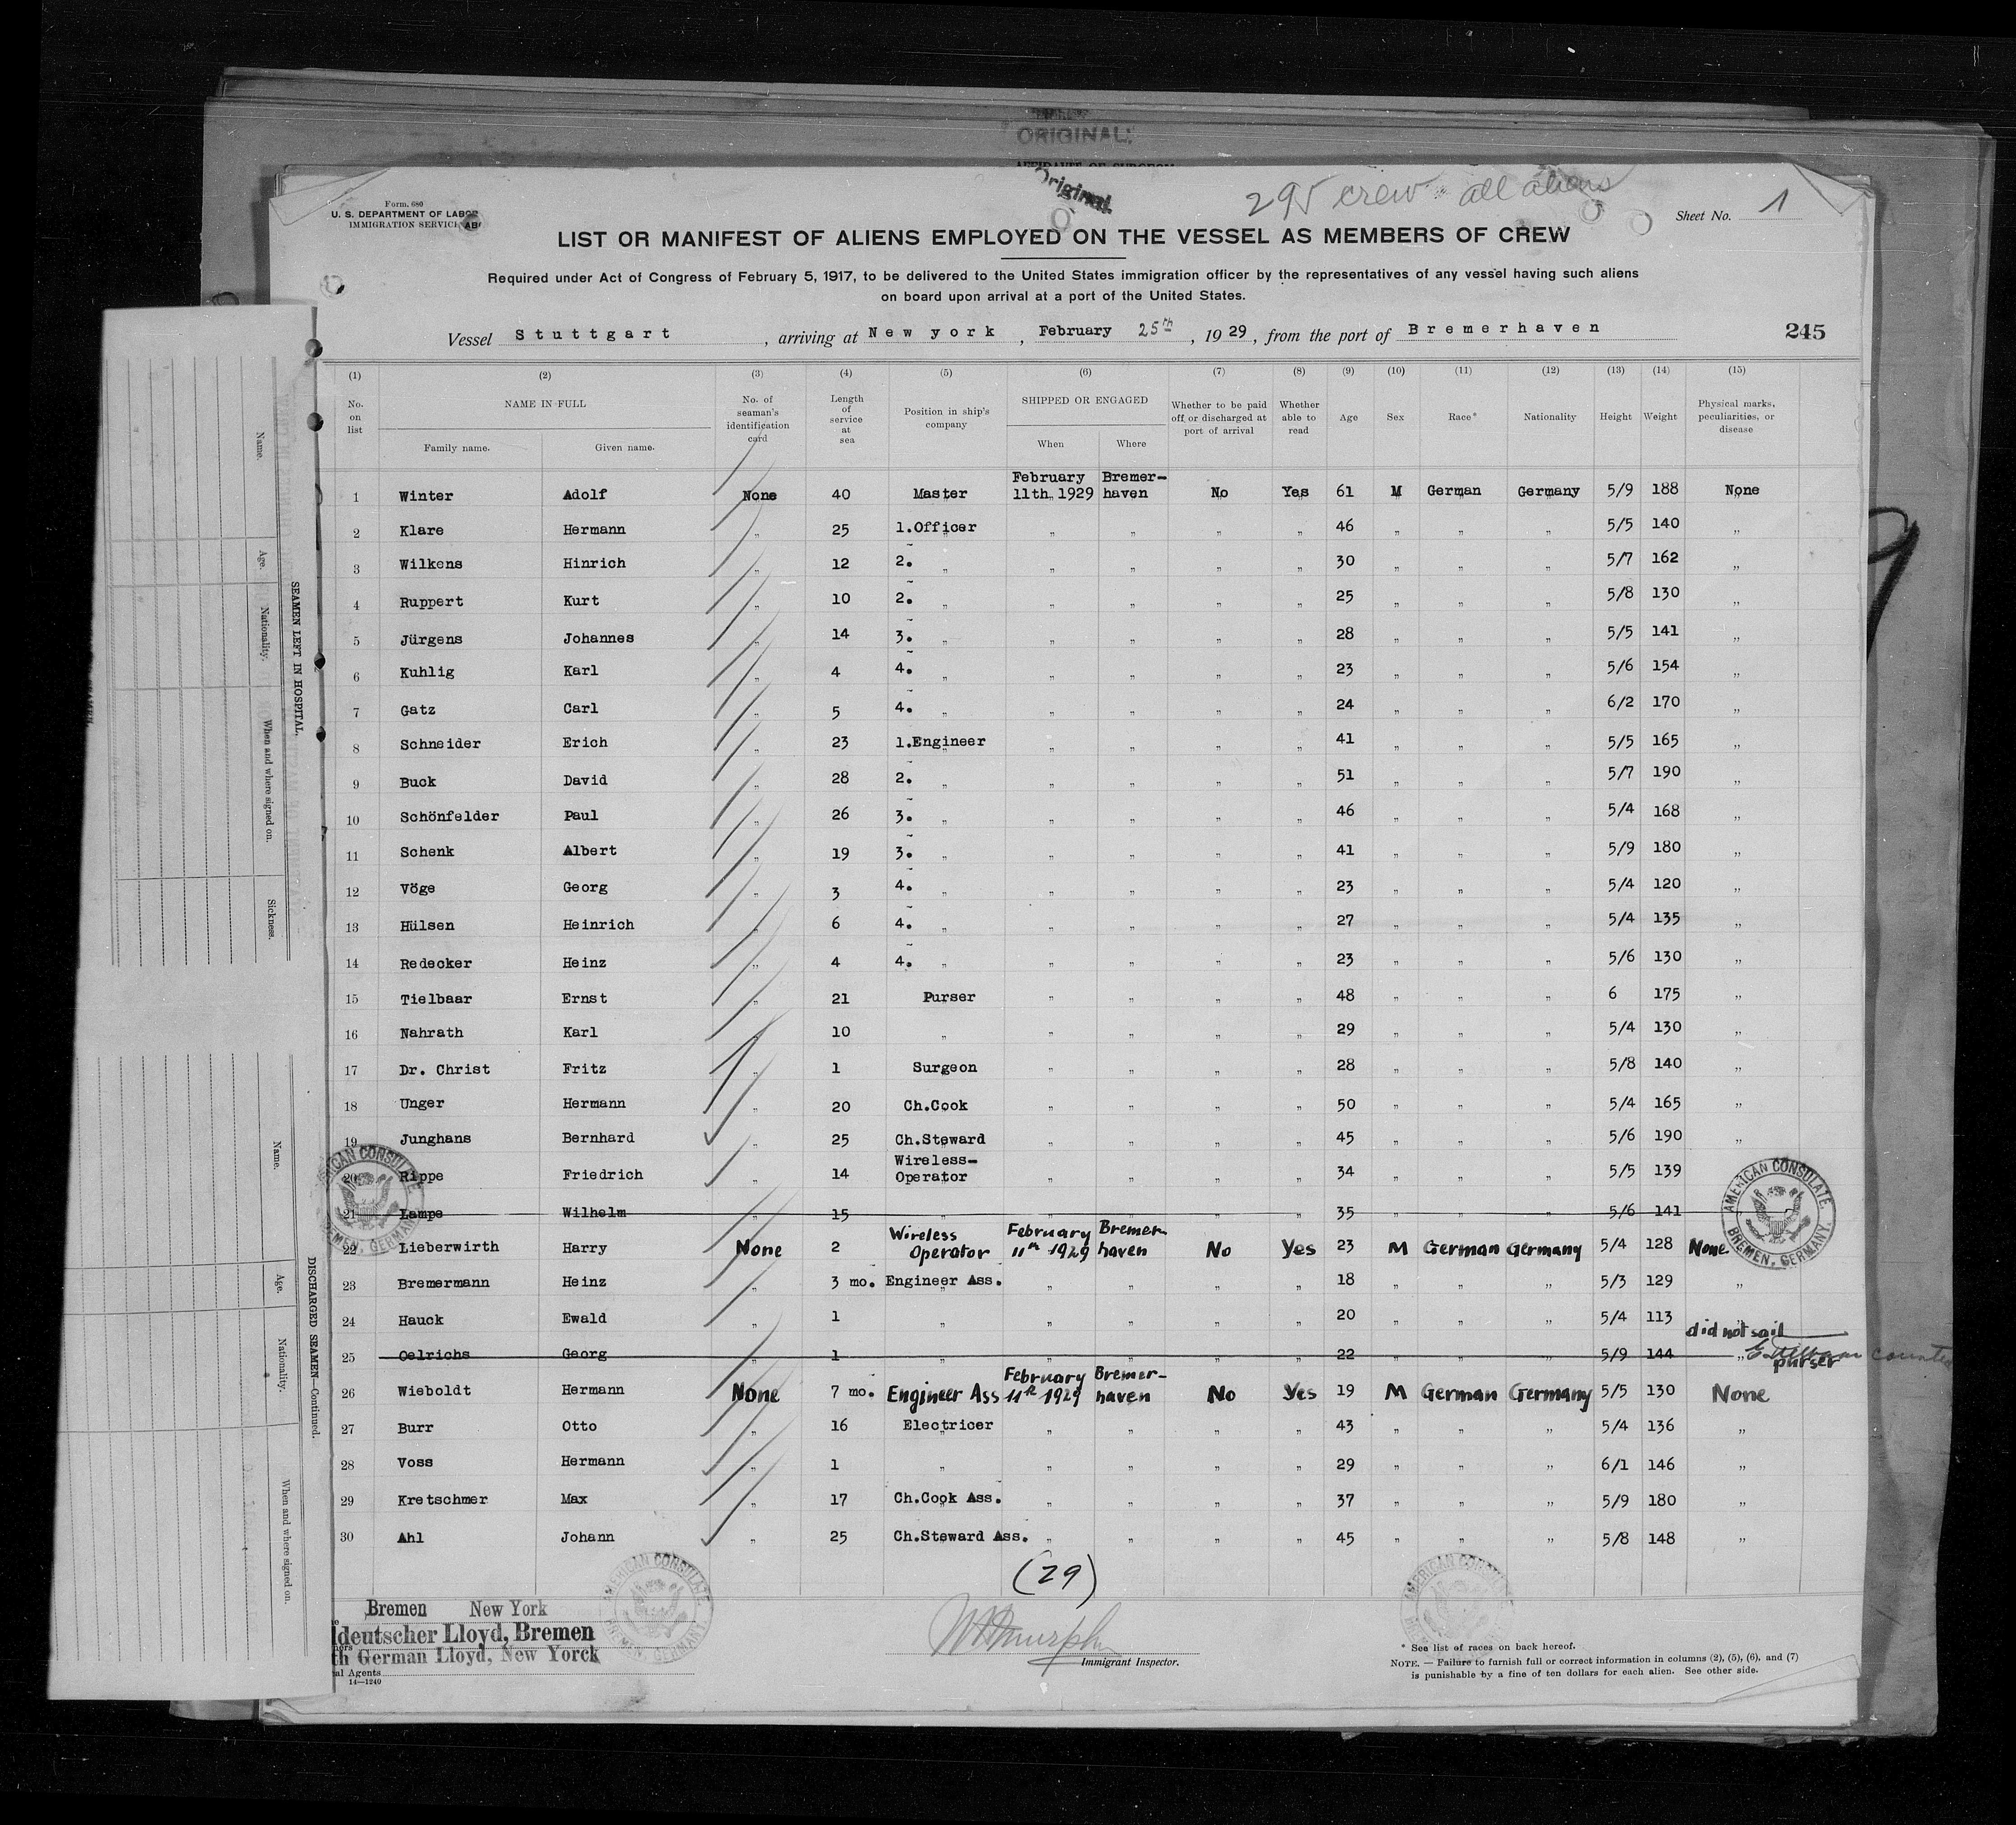 ORIGINAL
Original
295 crew all aliens
Form. 680
U. S. DEPARTMENT OF LABOR
IMMIGRATION SERVICE
Sheet No. 1
LIST OR MANIFEST OF ALIENS EMPLOYED ON THE VESSEL AS MEMBERS OF CREW
Required under Act of Congress of February 5, 1917, to be delivered to the United States immigration officer by the representatives of any vessel having such aliens
on board upon arrival at a port of the United States.
Vessel Stuttgart, arriving at New york, February 25th, 1929, from the port of Bremerhaven 245
(1) (2) (3) (4) (5) (6) (7) (8) (9) (10) (11) (12) (13) (14) (15)
No. on list NAME IN FULL Family name. Given name. No. of seaman's identification card Length of service at sea Position in ship's company SHIPPED OR ENGAGED When Where Whether to be paid off or discharged at port of arrival Whether able to read Age Sex Race* Nationality Height Weight Physical marks, peculiarities, or disease
1 Winter Adolf None 40 Master February 11th 1929 Bremer-haven No Yes 61 M German Germany 5/9 188 None
2 Klare Hermann " 25 1.Officer " " " " 46 " " " 5/5 140 "
3 Wilkens Hinrich " 12 2. " " " " " 30 " " " 5/7 162 "
4 Ruppert Kurt " 10 2. " " " " " 25 " " " 5/8 130 "
5 Jürgens Johannes " 14 3. " " " " " 28 " " " 5/5 141 "
6 Kuhlig Karl " 4 4. " " " " " 23 " " " 5/6 154 "
7 Gatz Carl " 5 4. " " " " " 24 " " " 6/2 170 "
8 Schneider Erich " 23 1.Engineer " " " " 41 " " " 5/5 165 "
9 Buck David " 28 2. " " " " " 51 " " " 5/7 190 "
10 Schönfelder Paul " 26 3. " " " " " 46 " " " 5/4 168 "
11 Schenk Albert " 19 3. " " " " " 41 " " " 5/9 180 "
12 Vöge Georg " 3 4. " " " " " 23 " " " 5/4 120 "
13 Hülsen Heinrich " 6 4. " " " " " 27 " " " 5/4 135 "
14 Redecker Heinz " 4 4. " " " " " 23 " " " 5/6 130 "
15 Tielbaar Ernst " 21 Purser " " " " 48 " " " 6 175 "
16 Nahrath Karl " 10 " " " " " 29 " " " 5/4 130 "
17 Dr. Christ Fritz " 1 Surgeon " " " " 28 " " " 5/8 140 "
18 Unger Hermann " 20 Ch.Cook " " " " 50 " " " 5/4 165 "
19 Junghans Bernhard " 25 Ch.Steward " " " " 45 " " " 5/6 190 "
20 Rippe Friedrich " 14 Wireless-Operator " " " " 34 " " " 5/5 139 "
21 Lampe Wilhelm " 15 " " " " " 35 " " " 5/6 141
22 Lieberwirth Harry None 2 Wireless Operator February 11th 1929 Bremer-haven No Yes 23 M German Germany 5/4 128 None
23 Bremermann Heinz " 3 mo. Engineer Ass. " " " " 18 " " " 5/3 129 "
24 Hauck Ewald " 1 " " " " " 20 " " " 5/4 113 "
did not sail
25 Oelrichs Georg " 1 " " " " " 22 " " " 5/9 144 "
purser
26 Wieboldt Hermann None 7 mo. Engineer Ass February 11th 1929 Bremer-haven No Yes 19 M German Germany 5/5 130 None
27 Burr Otto " 16 Electricer " " " " 43 " " " 5/4 136 "
28 Voss Hermann " 1 " " " " " 29 " " " 6/1 146 "
29 Kretschmer Max " 17 Ch.Cook Ass. " " " " 37 " " " 5/9 180 "
30 Ahl Johann " 25 Ch.Steward Ass. " " " " 45 " " " 5/8 148 "
(29)
AMERICAN CONSULATE BREMEN, GERMANY.
AMERICAN CONSULATE BREMEN, GERMANY.
AMERICAN CONSULATE BREMEN, GERMANY.
AMERICAN CONSULATE BREMEN, GERMANY.
Bremen New York
ldeutscher Lloyd, Bremen
th German Lloyd, New Yorck
al Agents
14—1240
Immigrant Inspector.
* See list of races on back hereof.
NOTE. — Failure to furnish full or correct information in columns (2), (5), (6), and (7)
is punishable by a fine of ten dollars for each alien. See other side.
SEAMEN LEFT IN HOSPITAL.
Name. Age. Nationality. When and where signed on. Sickness.
DISCHARGED SEAMEN—Continued.
Name. Age. Nationality. When and where signed on.